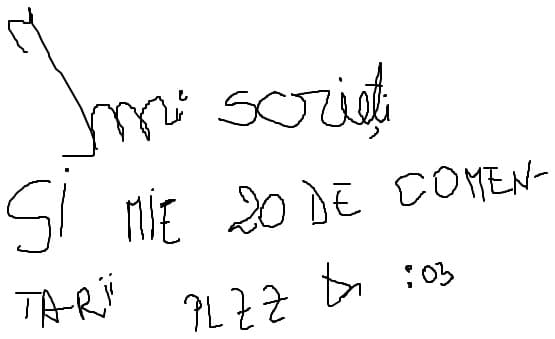 Îmi scrieți
SI MIE 20 DE COMEN-
TARII PLZZ :03